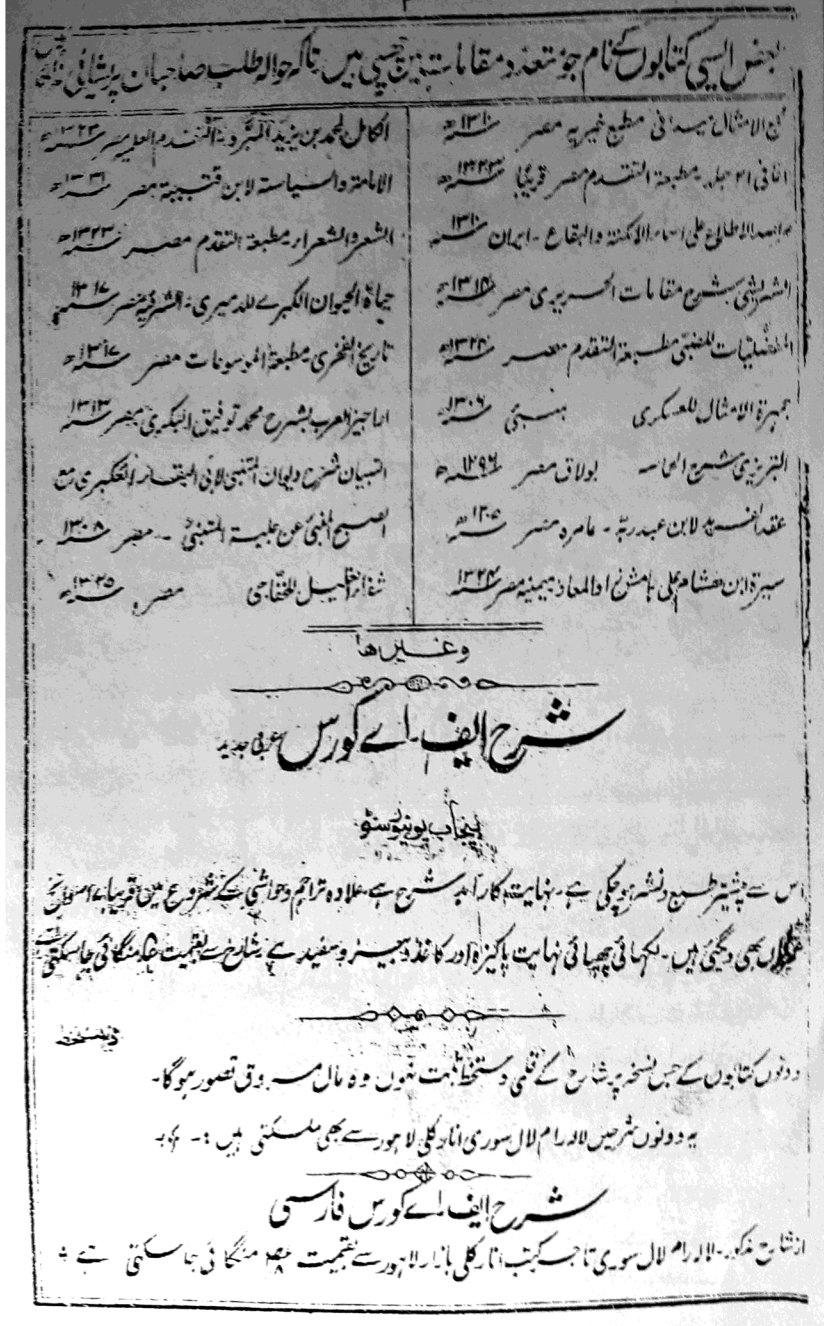 بعض ایسی کتابوں کے نام جو متعدد مقامات میں چھپی ہیں تاکہ حوالہ طلب صاحبان پریشانی
الامثال میدانی مطبع خیریہ مصر ۱۳۱۰ھ
اغانی ۲۱ جلد۔ مطبعۃ التقدم مصر قریبًا ۱۳۲۳ھ
مراصد الاطلاع علی اسماء الامکنۃ والبقاع۔ ایران ۱۳۱۰ھ
الشریشی بشرح مقامات الحریری مصر
المفضلیات للضبّی مطبعۃ التقدم مصر ۱۳۲۴ھ
جمہرۃ الامثال للعسکری بمبئی ۱۳۰۶ھ
التبریزی شرح الحماسہ بولاق مصر ۱۲۹۶ھ
عقد الفرید لابن عبد ربہ۔ عامرہ مصر
سیرۃ ابن ہشام علی ہامش زاد المعاد میمنیہ مصر ۱۳۲۴ھ
الکامل لمحمد بن یزید المبرد۔ التقدم مصر ۱۳۲۳ھ
الامامۃ والسیاسۃ لابن قتیبۃ مصر ۱۳۳۱ھ
الشعر والشعراء مطبعۃ التقدم مصر ۱۳۲۳ھ
حیاۃ الحیوان الکبرے للدمیری۔ الشرفیہ مصر ۱۳۱۷ھ
تاریخ الفخری مطبعۃ الموسوعات مصر ۱۳۱۷ھ
اراجیز العرب بشرح محمد توفیق البکری مصر ۱۳۱۳ھ
التبیان شرح دیوان المتنبی لابی البقاء العکبری مع
الصبح المنبی عن حیثیۃ المتنبی۔ مصر ۱۳۰۸ھ
شفاء الغلیل للخفاجی مصر ۱۳۲۵ھ
وغیرہا
شرح ایف۔ اے کورس عربی جدید
پنجاب یونیورسٹی
اس سے پیشتر طبع و نشر ہو چکی ہے۔ نہایت کار آمد شرح ہے۔ علاوہ تراجم و حواشی کے شروع میں قریبا
بھی دیگئی ہیں۔ لکھائی چھپائی نہایت پاکیزہ اور کاغذ دبیز و سفید ہے شارح سے بقیمت منگائی جا سکتی ہے
دستخط
دونوں کتابوں کے جس نسخہ پر شارح کے قلمی دستخط ثبت نہوں وہ مال مسروق تصور ہوگا۔
یہ دونوں شرحیں لالہ رام لال سوری انارکلی لاہور سے بھی ملسکتی ہیں :۔
شرح ایف۔ اے کورس فارسی
از شارح مذکور۔ لالہ رام لال سوری تاجر کتب انارکلی بازار لاہور سے بقیمت منگائی جا سکتی ہے